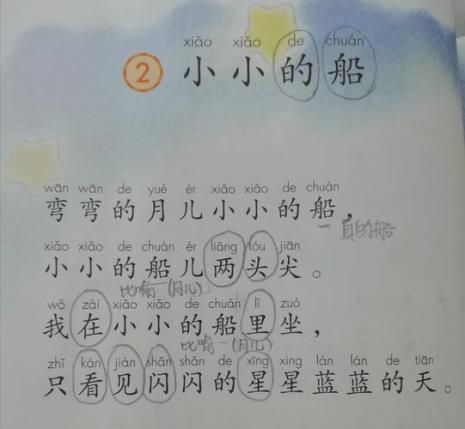 xiǎo xiǎo de chuán
2 小小的船
wān wān de yuè ér xiǎo xiǎo de chuán
弯弯的月儿小小的船，
一真的船
xiǎo xiǎo de chuán ér liǎng tóu jiān
小小的船儿两头尖。
比喻一(月儿)
wǒ zài xiǎo xiǎo de chuán lǐ zuò
我在小小的船里坐，
比喻一(月儿)
zhǐ kàn jiàn shǎn shǎn de xīng xing lán lán de tiān
只看见闪闪的星星蓝蓝的天。